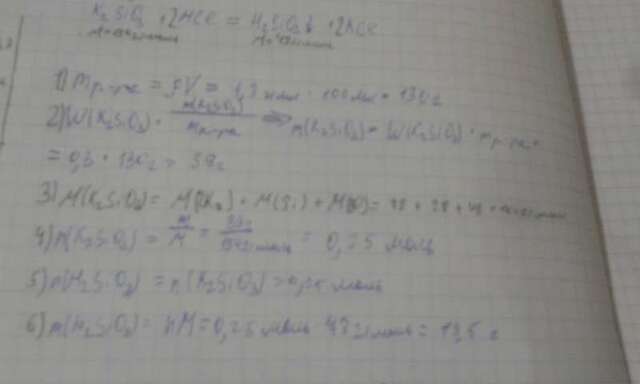 K₂SiO₃ + 2HCl = H₂SiO₃↓ + 2KCl
1) m р-ра = ρV = 1,3 г/мл · 100 мл = 130 г
2) W(K₂SiO₃) = m(K₂SiO₃) / m р-ра ⇒ m(K₂SiO₃) = W(K₂SiO₃) · m р-ра =
= 0,3 · 130 г = 39 г
3) M(K₂SiO₃) = M(K₂) + M(Si) + M(O) = 78 + 28 + 48 =
4) n(K₂SiO₃) = m / M = = 0,25 моль
5) n(H₂SiO₃) = n(K₂SiO₃) = 0,25 моль
6) m(H₂SiO₃) = nM = 0,25 моль · 78 г/моль = 19,5 г